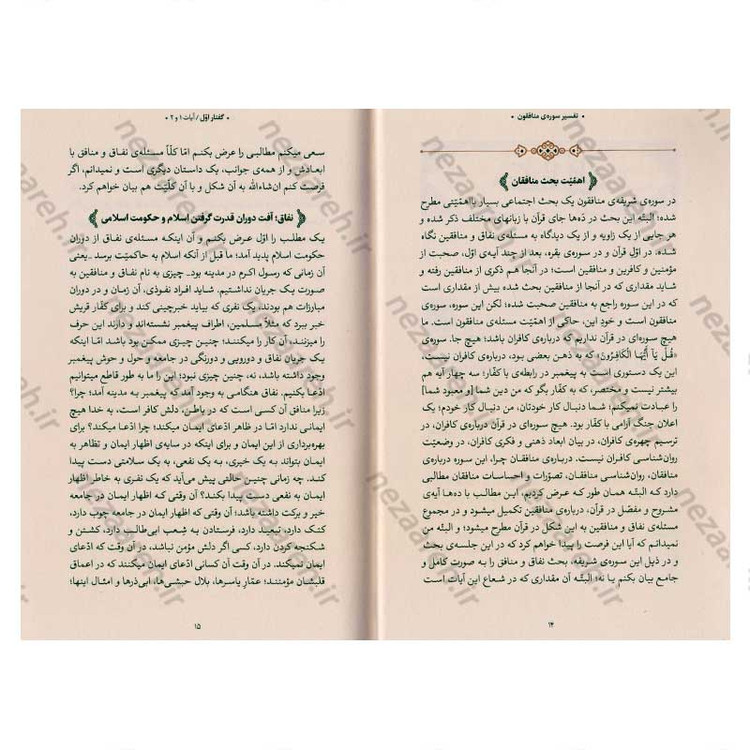 • تفسیر سوره‌ی منافقون •
اهمّیّت بحث منافقان
در سوره‌ی شریفه‌ی منافقون یک بحث اجتماعی بسیار بااهمّیّتی مطرح
شده؛ البتّه این بحث در ده‌ها جای قرآن با زبانهای مختلف ذکر شده و
هر جایی از یک زاویه و از یک دیدگاه به مسئله‌ی نفاق و منافقین نگاه
شده. در اوّل قرآن و در سوره‌ی بقره، بعد از چند آیه‌ی اوّل، صحبت از
مؤمنین و کافرین و منافقین است؛ در آنجا هم ذکری از منافقین رفته و
شاید مقداری که در آنجا از منافقین بحث شده بیش از مقداری است
که در این سوره راجع به منافقین صحبت شده؛ لکن این سوره، سوره‌ی
منافقون است و خودِ این، حاکی از اهمّیّت مسئله‌ی منافقون است. ما
هیچ سوره‌ای در قرآن نداریم که درباره‌ی کافران باشد؛ هیچ جا. سوره‌ی
﴿قُل یٰٓاَیُّهَا الکٰفِرونَ﴾ که به ذهن بعضی بود، درباره‌ی کافران نیست،
این یک دستوری است به پیغمبر در رابطه‌ی با کفّار؛ سه چهار آیه هم
بیشتر نیست و مختصر، که به کفّار بگو که من دین شما [و معبود شما]
را عبادت نمیکنم؛ شما دنبال کار خودتان، من دنبال کار خودم؛ یک
اعلان جنگ آرامی با کفّار بود. هیچ سوره‌ای در قرآن درباره‌ی کافران، در
ترسیم چهره‌ی کافران، در بیان ابعاد ذهنی و فکری کافران، در وضعیّت
روان‌شناسی کافران نیست. درباره‌ی منافقان چرا، این سوره درباره‌ی
منافقان، روان‌شناسی منافقان، تصوّرات و احساسات منافقان مطالبی
دارد که البتّه همان طور که عرض کردیم، این مطالب با ده‌ها آیه‌ی
مشروح و مفصّل در قرآن، درباره‌ی منافقین تکمیل میشود و در مجموع
مسئله‌ی نفاق و منافقین به این شکل در قرآن مطرح میشود؛ و البتّه من
نمیدانم که آیا این فرصت را پیدا خواهم کرد که در این جلسه‌ی بحث
و در ذیل این سوره‌ی شریفه، بحث نفاق و منافق را به صورت کامل و
جامع بیان بکنم یا نه؛ البتّه آن مقداری که در شعاع این آیات است
۱۴
• گفتار اوّل / آیات ۱ و ۲ •
سعی میکنم مطالبی را عرض بکنم امّا کلّاً مسئله‌ی نفاق و منافق با
ابعادش و از همه‌ی جوانب، یک داستان دیگری است و نمیدانم، اگر
فرصت کنم ان‌شاءالله به آن شکل و با آن کلّیّت هم بیان خواهم کرد.
نفاق؛ آفت دوران قدرت گرفتن اسلام و حکومت اسلامی
یک مطلب را اوّل عرض بکنم و آن اینکه مسئله‌ی نفاق از دوران
حکومت اسلام پدید آمد؛ ما قبل از آنکه اسلام به حاکمیّت برسد ـ یعنی
آن زمانی که رسول اکرم در مدینه بود ـ چیزی به نام نفاق و منافقین به
صورت یک جریان نداشتیم. شاید افراد نفوذی، آن زمان و در دوران
مبارزات هم بودند، یک نفری که بیاید خبرچینی کند و برای کفّار قریش
خبر ببرد که مثلاً مسلمین، اطراف پیغمبر نشسته‌اند و دارند این حرف
را میزنند، آن کار را میکنند؛ چنین چیزی ممکن بود باشد امّا اینکه
یک جریان نفاق و دورویی و دورنگی در جامعه و حول و حوش پیغمبر
وجود داشته باشد، نه، چنین چیزی نبود؛ این را ما به طور قاطع میتوانیم
ادّعا بکنیم. نفاق هنگامی به وجود آمد که پیغمبر به مدینه آمد؛ چرا؟
زیرا منافق آن کسی است که در باطن، دلش کافر است، به خدا هیچ
ایمانی ندارد امّا در ظاهر ادّعای ایمان میکند؛ چرا ادّعا میکند؟ برای
بهره‌برداری از این ایمان و برای اینکه در سایه‌ی اظهار ایمان و تظاهر به
ایمان بتواند به یک خیری، به یک نفعی، به یک سلامتی دست پیدا
کند. چه زمانی چنین حالتی پیش می‌آید که یک نفری به خاطر اظهار
ایمان به نفعی دست پیدا بکند؟ آن وقتی که اظهار ایمان در جامعه
خیر و برکت داشته باشد؛ آن وقتی که اظهار ایمان در جامعه چوب دارد،
کتک دارد، تبعید دارد، فرستادن به شِعب ابی‌طالب دارد، کشتن و
شکنجه کردن دارد، کسی اگر دلش مؤمن نباشد، در آن وقت که ادّعای
ایمان نمیکند. در آن وقت آن کسانی ادّعای ایمان میکنند که در اعماق
قلبشان مؤمنند؛ عمّار یاسرها، بلال حبشی‌ها، ابی‌ذرها و امثال اینها؛
۱۵
nezaareh.ir